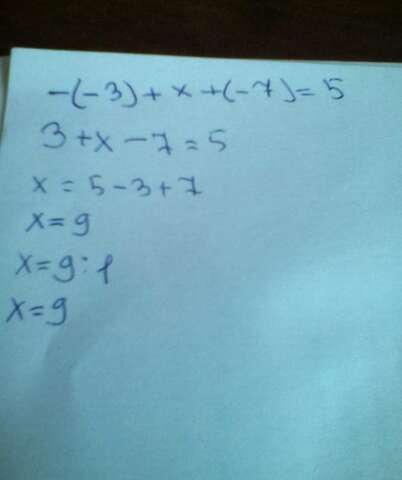 -(-3)+x+(-7)=5
3+x-7=5
x=5-3+7
x=9
x=9:1
x=9